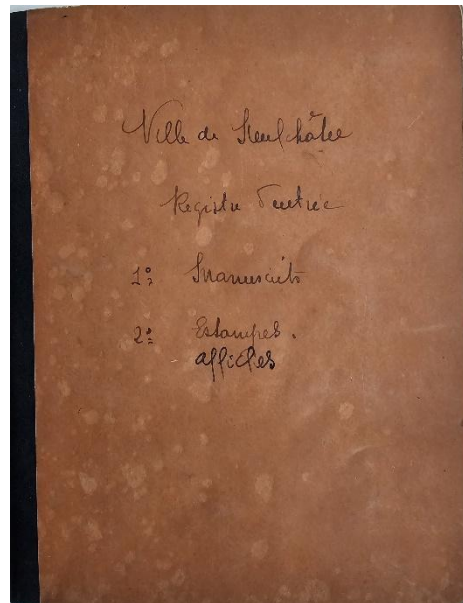 Ville de Neufchâteau
Registre d'entrée
1º Manuscrits
2º Estampes.
affiches